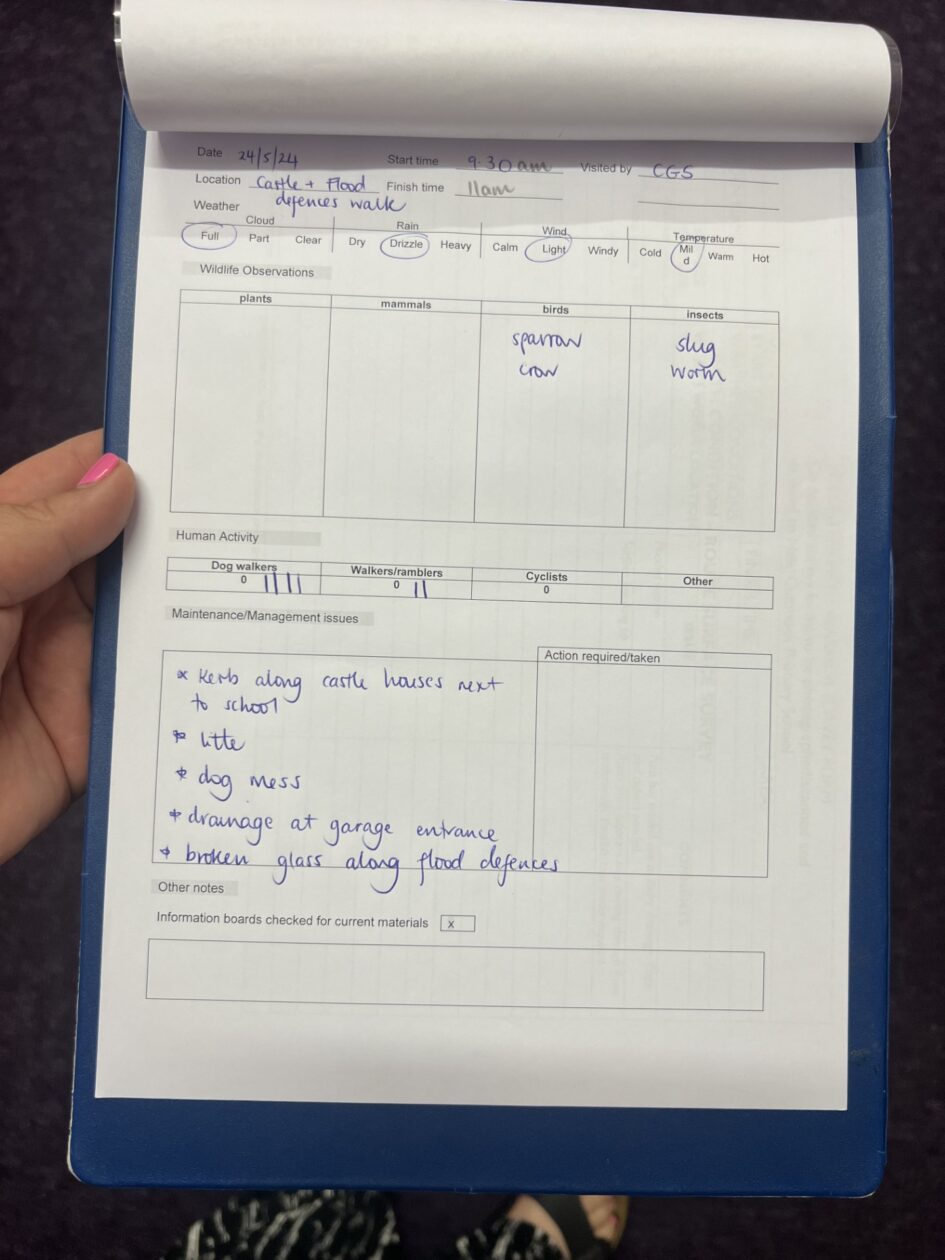 Date 24/5/24 Start time 9.30am Visited by CGS
Location Castle + Flood Finish time 11am
defences walk
Weather
Cloud Rain Wind Temperature
Full Part Clear Dry Drizzle Heavy Calm Light Windy Cold Mil Warm Hot
d
Wildlife Observations
plants mammals birds insects
sparrow slug
crow worm
Human Activity
Dog walkers Walkers/ramblers Cyclists Other
0 |||| 0 || 0
Maintenance/Management issues
Action required/taken
* Kerb along castle houses next
to school
* litte
* dog mess
* drainage at garage entrance
* broken glass along flood defences
Other notes
Information boards checked for current materials x